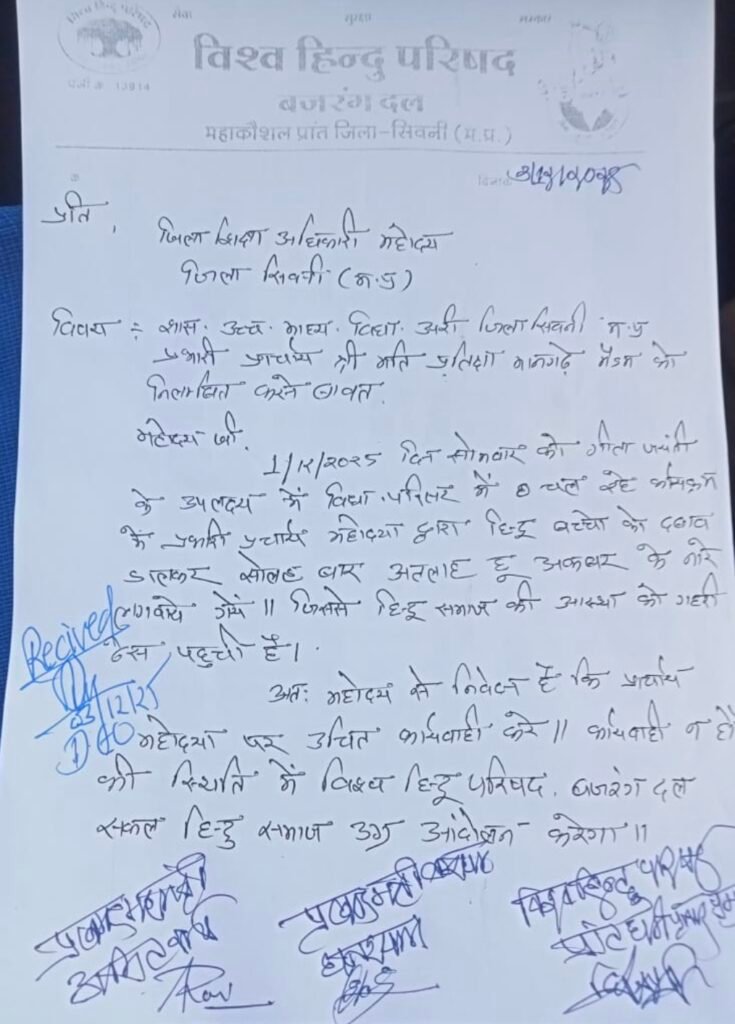 विश्व हिन्दु परिषद
सेवा सुरक्षा संस्कार
विश्व हिन्दु परिषद
बजरंग दल
महाकौशल प्रांत जिला-सिवनी (म.प्र.)
प्रति,
जिला शिक्षा अधिकारी महोदय
जिला सिवनी (म.प्र)
विषय :- शास. उच्च. माध्य. विद्या. अरी जिला सिवनी म.प्र
प्रभारी प्राचार्य श्री मति प्रतिक्षा मानगढ़े मैडम को
निलम्बित करने बावत.
महोदय जी.
1/12/2025 दिन सोमवार को गीता जयंती
के उपलक्ष्य में विद्या. परिसर में चल रहे कार्यक्रम
के प्रभारी प्रचार्य महोदया द्वारा हिन्दु बच्चो को दबाव
डालकर सोलह बार अल्लाह हू अकबर के नारे
लगवाये गये ॥ जिससे हिन्दु समाज की आस्था को गहरी
ठेस पहुची है।
Recived
03/12/25
DEO
अतः महोदय से निवेदन है कि प्राचार्य
महोदया पर उचित कार्यवाही करे ॥ कार्यवाही न होने
की स्थिति में विश्व हिन्दू परिषद. बजरंग दल
सकल हिन्दु समाज उग्र आंदोलन करेगा ॥
विश्व हिन्दु परिषद